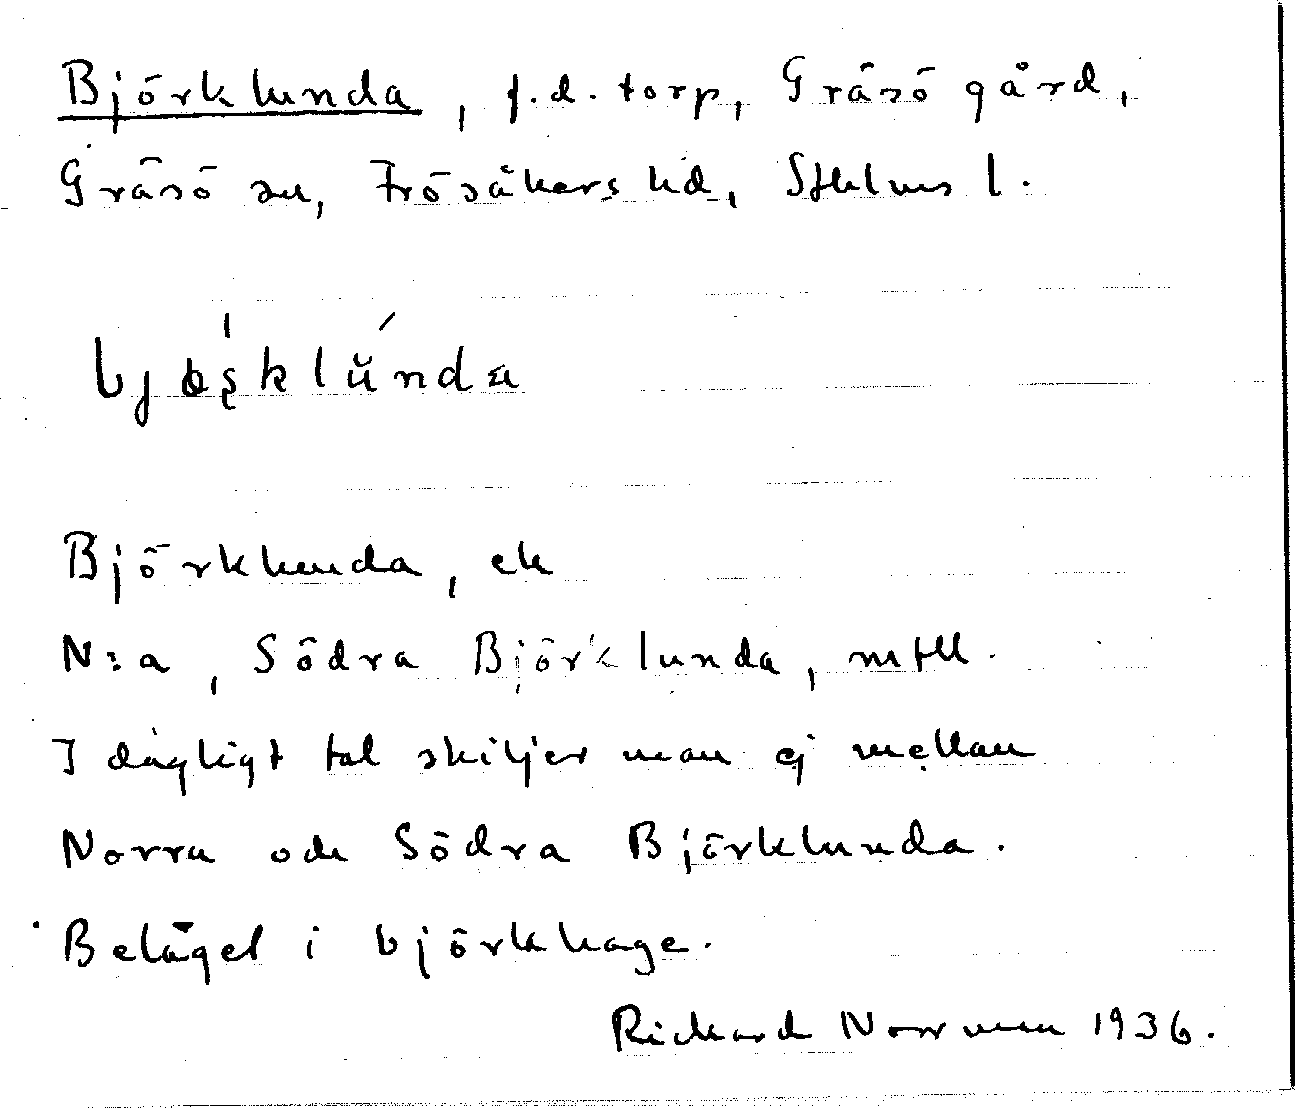 Björklunda, f.d. torp, Gräsö gård,
Gräsö sn, Frösåkers hd, Sthlms l.
bjösklŭnda
Björklunda, ek
N:a, Södra Björklunda, mtll.
I dagligt tal skiljer man ej mellan
Norra och Södra Björklunda.
Beläget i björkhage.
Rickard Norrman 1936.